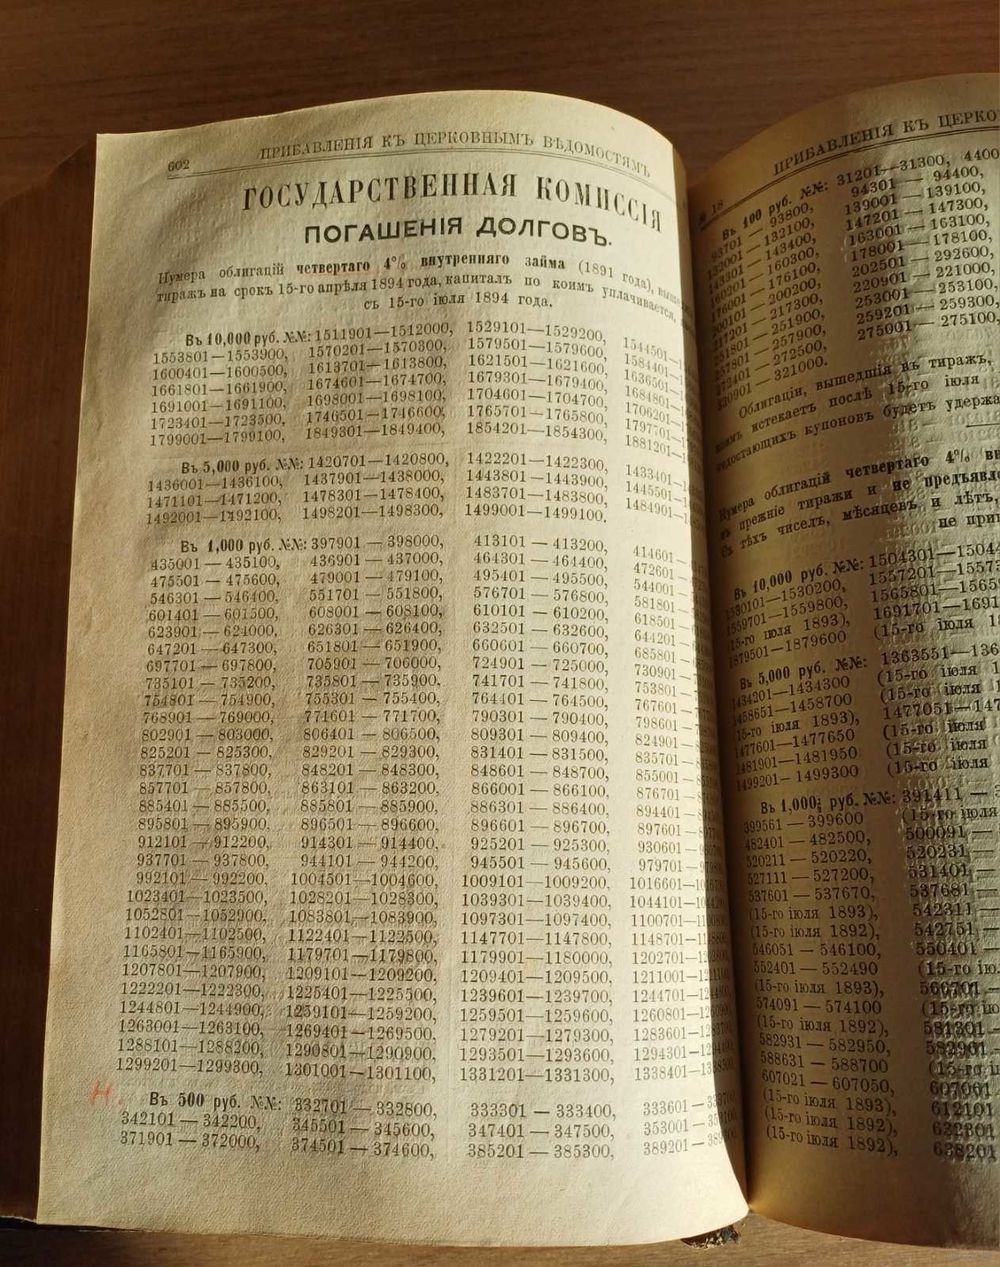 602
ПРИБАВЛЕНІЯ КЪ ЦЕРКОВНЫМЪ ВѢДОМОСТЯМЪ
ГОСУДАРСТВЕННАЯ КОМИССІЯ
ПОГАШЕНІЯ ДОЛГОВЪ.
Нумера облигацій четвертаго 4% внутренняго займа (1891 года),
тиражъ на срокъ 15-го апрѣля 1894 года, капиталъ по коимъ уплачивается,
съ 15-го іюля 1894 года.
Въ 10,000 руб. №№: 1511901—1512000, 1529101—1529200, 1544501—
1553801—1553900, 1570201—1570300, 1579501—1579600, 1584401—
1600401—1600500, 1613701—1613800, 1621501—1621600, 1636501—
1661801—1661900, 1674601—1674700, 1679301—1679400, 1684801—
1691001—1691100, 1698001—1698100, 1704601—1704700, 1706201—
1723401—1723500, 1746501—1746600, 1765701—1765800, 1797701—
1799001—1799100, 1849301—1849400, 1854201—1854300, 1881201—
Въ 5,000 руб. №№: 1420701—1420800, 1422201—1422300, 1433401—
1436001—1436100, 1437901—1438000, 1443801—1443900, 1445501—
1471101—1471200, 1478301—1478400, 1483701—1483800, 1484901—
1492001—1492100, 1498201—1498300, 1499001—1499100.
Въ 1,000 руб. №№: 397901—398000, 413101—413200, 414601—
435001—435100, 436901—437000, 464301—464400, 472601—
475501—475600, 479001—479100, 495401—495500, 544001—
546301—546400, 551701—551800, 576701—576800, 581801—
601401—601500, 608001—608100, 610101—610200, 618501—
623901—624000, 626301—626400, 632501—632600, 644201—
647201—647300, 651801—651900, 660601—660700, 685801—
697701—697800, 705901—706000, 724901—725000, 730901—
735101—735200, 735801—735900, 741701—741800, 753801—
754801—754900, 755301—755400, 764401—764500, 767601—
768901—769000, 771601—771700, 790301—790400, 798601—
802901—803000, 806401—806500, 809301—809400, 824901—
825201—825300, 829201—829300, 831401—831500, 835701—
837701—837800, 848201—848300, 848601—848700, 855001—
857701—857800, 863101—863200, 866001—866100, 876701—
885401—885500, 885801—885900, 886301—886400, 894401—
895801—895900, 896501—896600, 896601—896700, 897601—
912101—912200, 914301—914400, 925201—925300, 930601—
937701—937800, 944101—944200, 945501—945600, 979701—
992101—992200, 1004501—1004600, 1009101—1009200, 1016601—
1023401—1023500, 1028201—1028300, 1039301—1039400, 1044101—
1052801—1052900, 1083801—1083900, 1097301—1097400, 1100701—
1102401—1102500, 1122401—1122500, 1147701—1147800, 1148701—
1165801—1165900, 1179701—1179800, 1179901—1180000, 1202701—
1207801—1207900, 1209101—1209200, 1209401—1209500, 1211001—
1222201—1222300, 1225401—1225500, 1239601—1239700, 1244701—
1244801—1244900, 1259101—1259200, 1259501—1259600, 1260801—
1263001—1263100, 1269401—1269500, 1279201—1279300, 1283601—
1288101—1288200, 1290801—1290900, 1293501—1293600, 1294301—
1299201—1299300, 1301001—1301100, 1331201—1331300, 1338401—
Въ 500 руб. №№: 332701—332800, 333301—333400, 333601—
342101—342200, 345501—345600, 347401—347500, 353001—
371901—372000, 374501—374600, 385201—385300, 389201—
№ 18
ПРИБАВЛЕНІЯ КЪ
Въ 100 руб. №№: 31201—31300,
93701—93800, 94301—94400,
132001—132100, 139001—139100,
143301—143400, 147201—147300,
160201—160300, 163001—163100,
176001—176100, 178001—178100,
200101—200200, 202501—
217201—217300, 220901—221000,
251801—251900, 253001—253100,
257801—257900, 259201—259300,
272401—272500, 275001—275100,
320901—321000.
Облигаціи, вышедшія въ тиражъ,
коимъ истекаетъ послѣ 15-го іюля
недостающихъ купоновъ будетъ удержа
Нумера облигацій четвертаго 4% вн
въ прежніе тиражи и не предъявле
Съ тѣхъ чиселъ, мѣсяцевъ и лѣтъ,
не при
Въ 10,000 руб. №№: 1504301—
1530101—1530200, 1557201—
1559701—1559800, 1565801—
15-го іюля 1893), 1691701—
1879501—1879600 (15-го іюля
Въ 5,000 руб. №№: 1363551—
1434201—1434300 (15-го іюля
1458651—1458700 (15-го іюля
15-го іюля 1893), 1477051—
1477601—1477650 (15-го іюля
1481901—1481950 (15-го іюля
1499201—1499300 (15-го іюля
Въ 1,000 руб. №№: 391411—
399561—399600 (15-го іюля
482401—482500, 500091—
520211—520220, 520231—
527111—527200, 531401—
537601—537670, 537681—
(15-го іюля 1893), 542311—
(15-го іюля 1892), 542751—
546051—546100, 550401—
552401—552490 (15-го іюля
(15-го іюля 1893), 566701—
574091—574100 (15-го іюля
(15-го іюля 1892), 581301—
582931—582950, 582901—
588631—588700 (15-го іюля
607021—607050, 607061—
(15-го іюля 1893), 612101—
(15-го іюля 1892), 632801—
(15-го іюля 1892), 638201